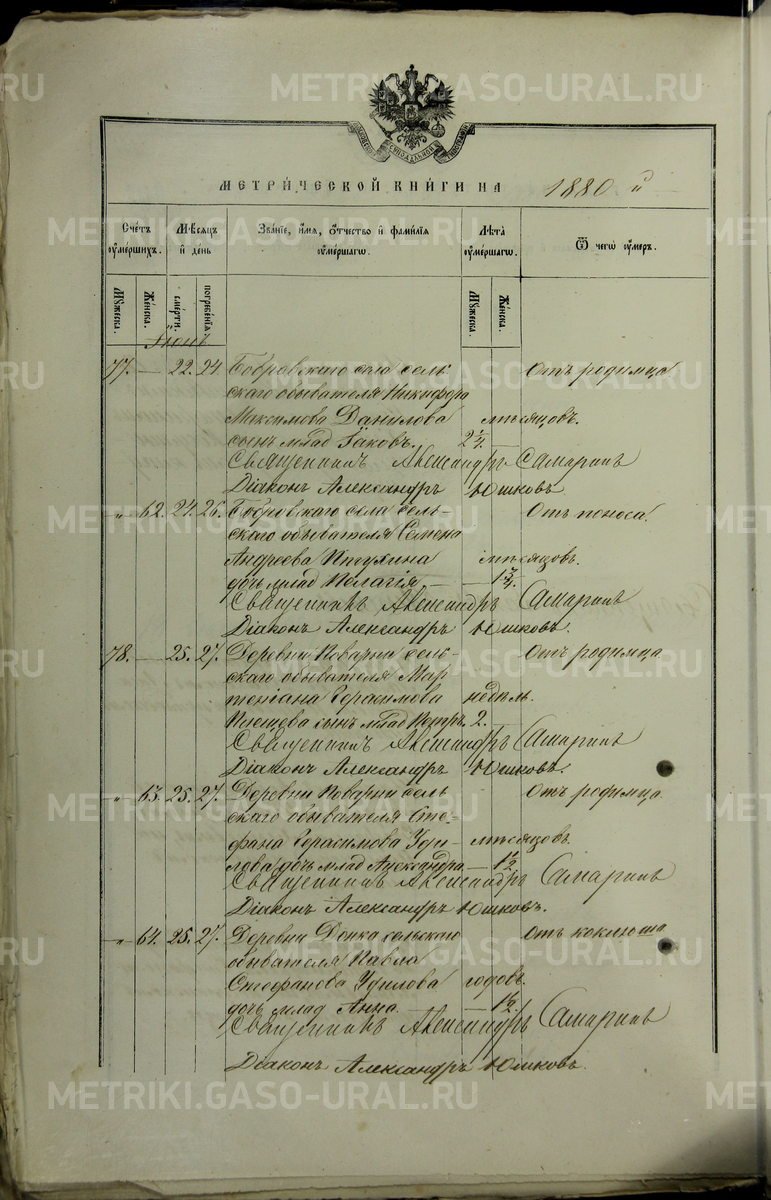 МЕТРИЧЕСКОЙ КНИГИ НА 1880 й
Счетъ умершихъ.
Мѣсяцъ и день
Званіе, имя, отчество и фамилія умершаго.
Лѣта умершаго.
Ѿ чегѡ умеръ.
Мужеска.
Женска.
смерти.
погребенія
Мужеска.
Женска.
Іюнь
77. — 22. 24 Бобровскаго села сель- Отъ родимца
скаго обывателя Никифора
Максимова Данилова мѣсяцовъ.
сынъ млад Іаковъ. 2½. —
Священникъ Александръ Самаринъ
Діаконъ Александръ Юшковъ
" 62. 24. 26. Бобровскаго села сель- Отъ поноса.
скаго обывателя Семена
Андреева Пптухина мѣсяцовъ.
дочь млад Пелагія —
Священникъ Александръ Самаринъ
Діаконъ Александръ Юшковъ.
78. — 25. 27. Деревни Поварни сель- Отъ родимца
скаго обывателя Мар-
теніана Герасимова недѣль.
сынъ млад Петръ. 2. —
Священникъ Александръ Самаринъ
Діаконъ Александръ Юшковъ.
" 63. 25. 27. Деревни Поварни сель- Отъ родимца
скаго обывателя Сте-
фана Герасимова Уди- мѣсяцовъ.
лова дочь млад Александра — 1½
Священникъ Александръ Самаринъ
Діаконъ Александръ Юшковъ.
" 64. 25. 27. Деревни Донка сельскаго Отъ коклюша
обывателя Павла
Стефанова Удилова годовъ.
дочь млад Анна. — 1½.
Священникъ Александръ Самаринъ
Діаконъ Александръ Юшковъ.
METRIKI.GASO-URAL.RU